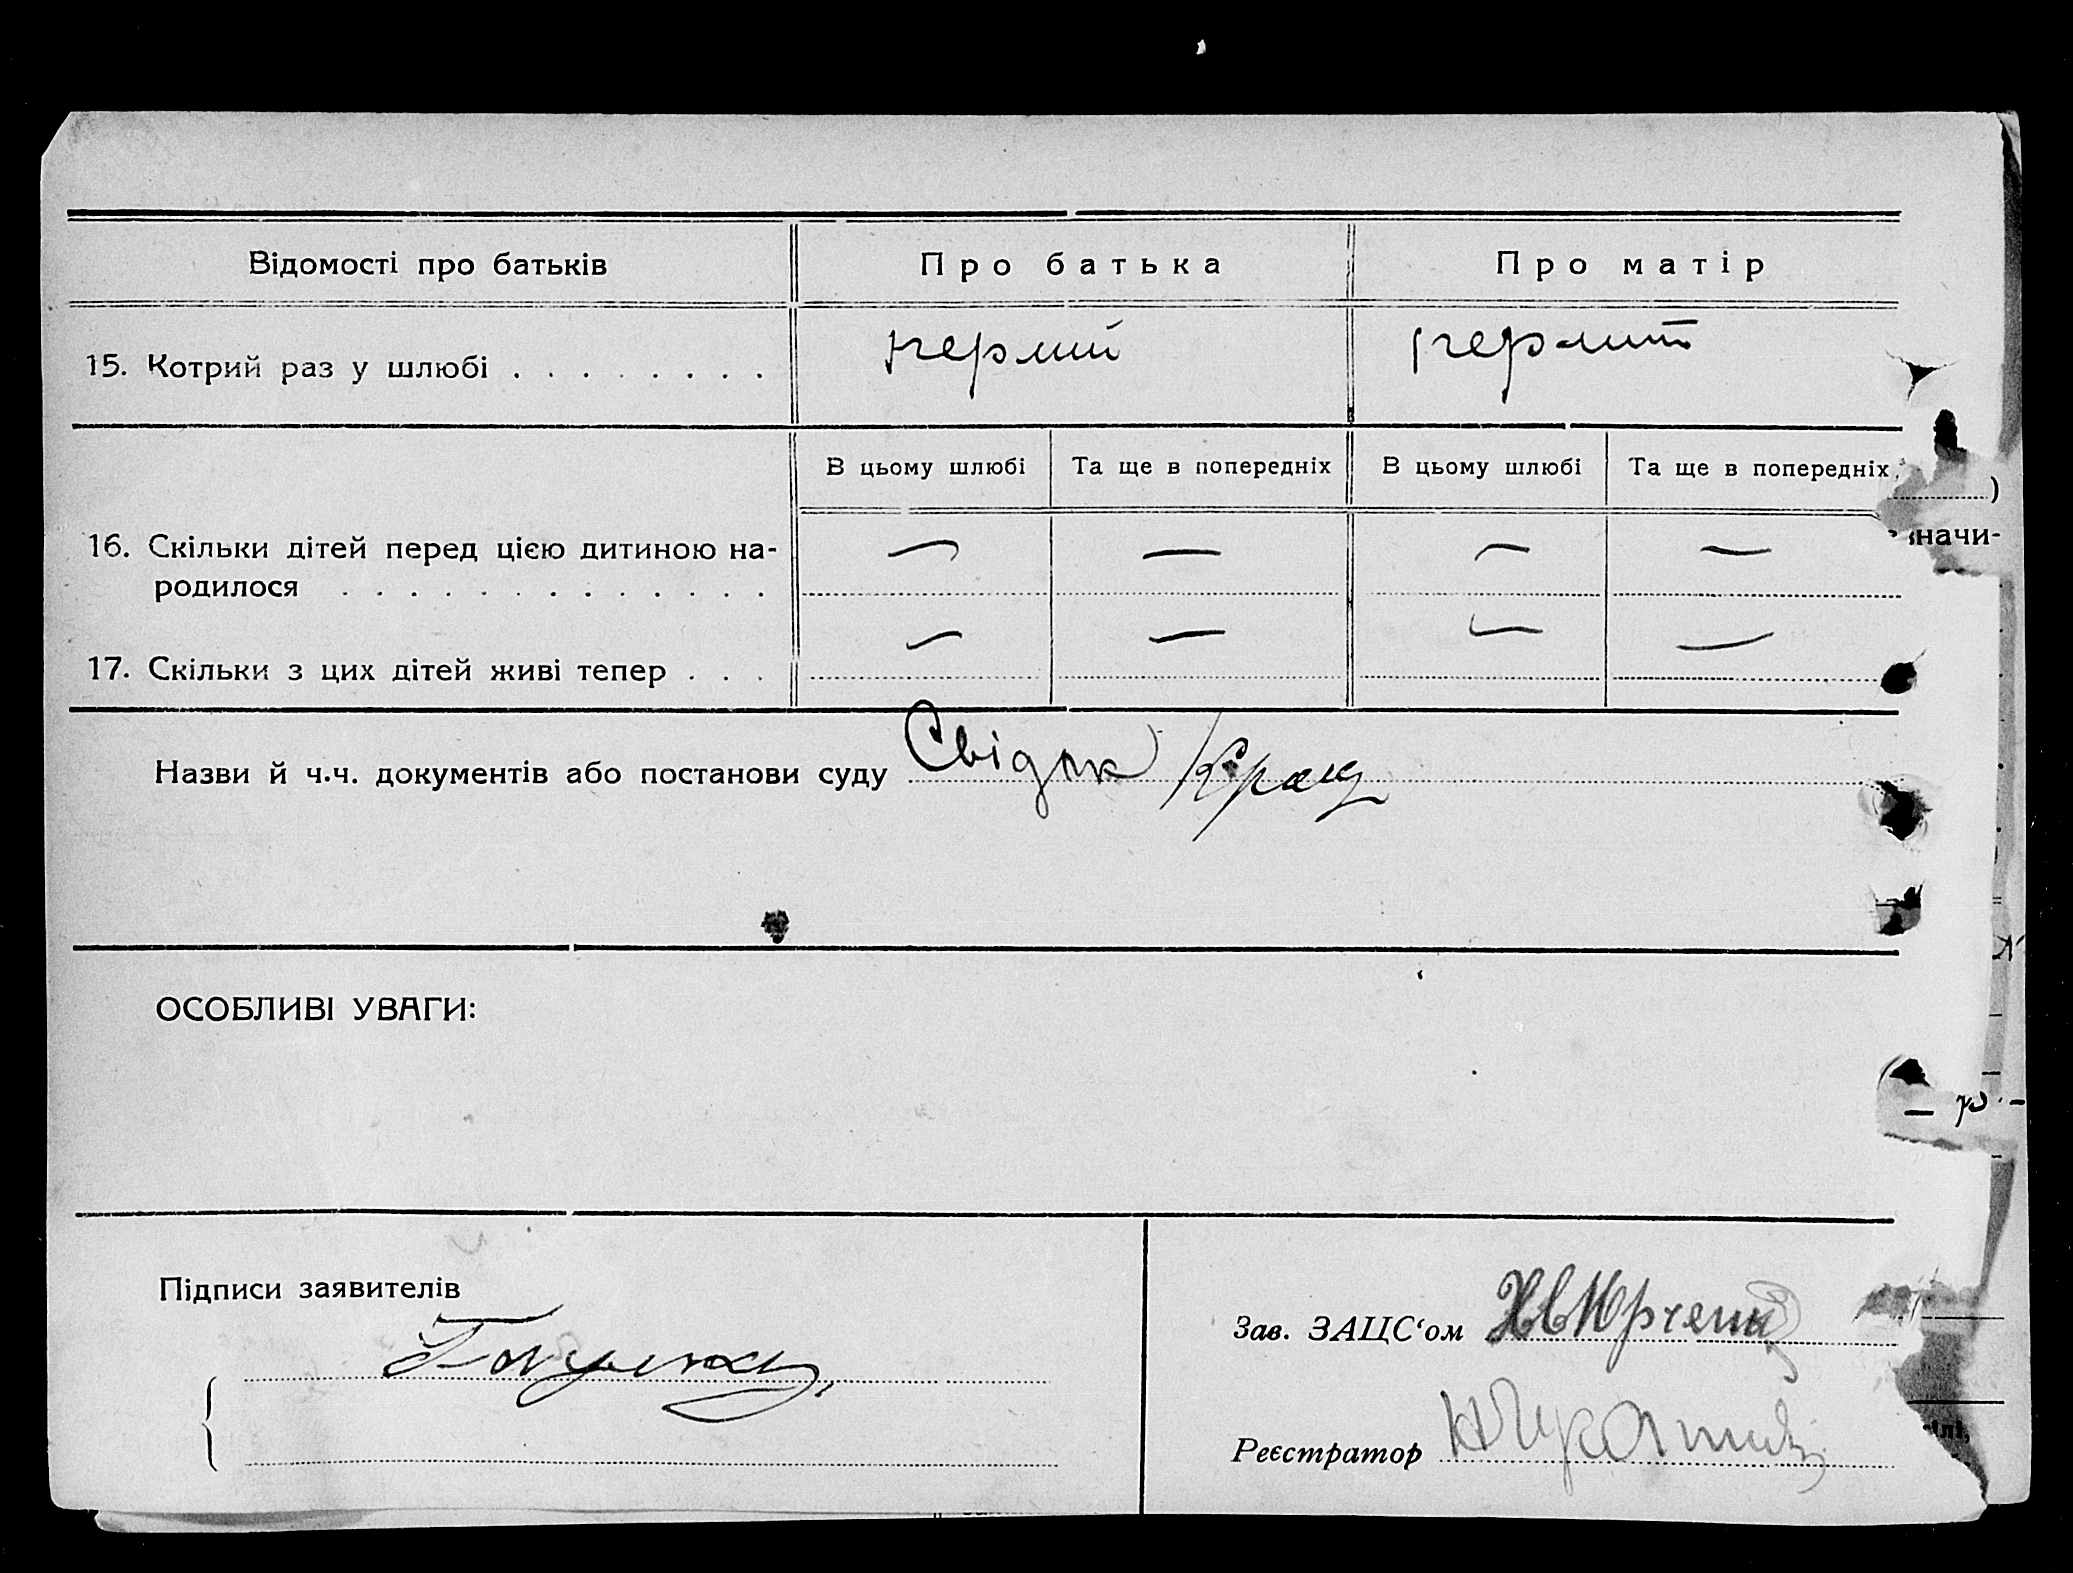 Відомості про батьків
Про батька
Про матір
15. Котрий раз у шлюбі . . . . . . . .
перший
перший
В цьому шлюбі
Та ще в попередніх
В цьому шлюбі
Та ще в попередніх
)
значи-
16. Скільки дітей перед цією дитиною на-
родилося . . . . . . . . . . . . .
— — — —
17. Скільки з цих дітей живі тепер . . .
— — — —
Назви й ч.ч. документів або постанови суду Свідок
ОСОБЛИВІ УВАГИ:
Підписи заявителів
Зав. ЗАЦС‘ом
Реєстратор